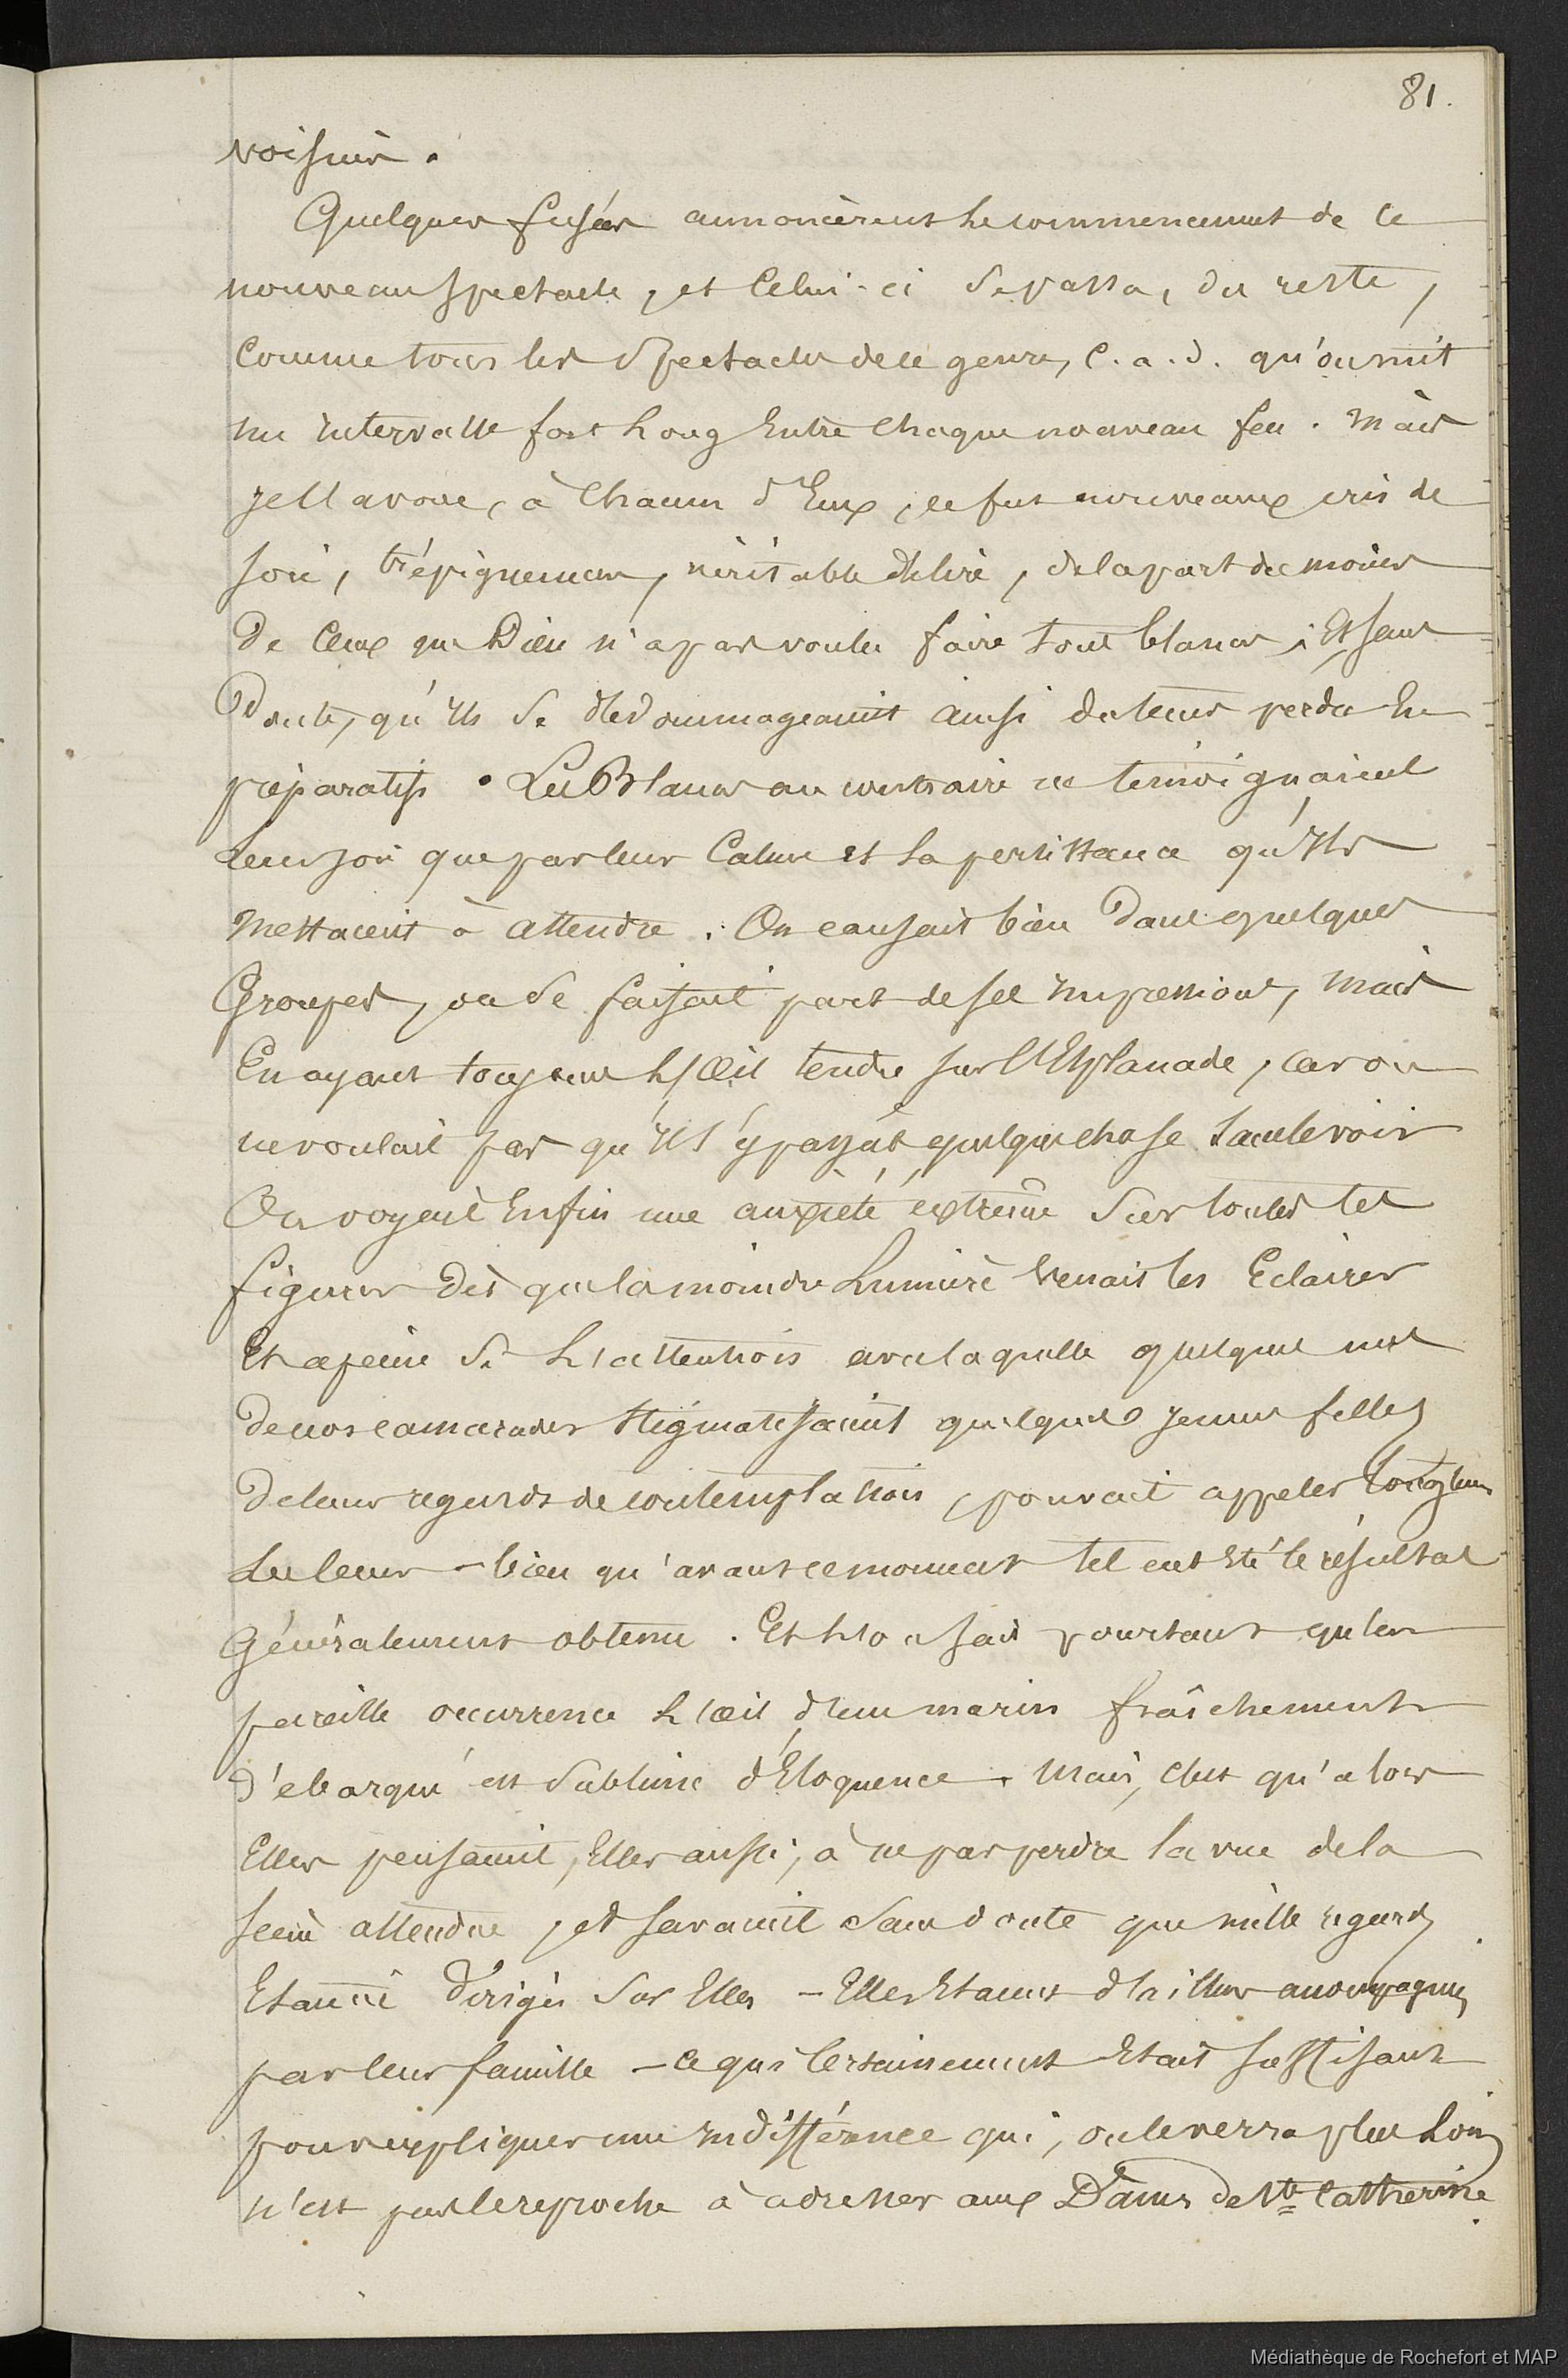 81.
voisins.
Quelques fusées annoncèrent le commencement de ce
nouveau spectacle, et Celui-ci se passa, du reste,
Comme tous les Spectacles de ce genre, C.a.d. qu'on mit
un intervalle fort long Entre Chaque nouveau feu. Mais
je l'avoue, à Chacun d'Eux, ce fut nouveaux cris de
joie, trépignements, véritable délire, de la part du moins
De Ceux que Dieu n'a pas voulu faire tous blancs ; Et sans
Doute, qu'Ils Se dédommageaient ainsi du temps perdu En
préparatifs. Les Blancs au contraire ne témoignaient
leur joie que par leur Calme et la persistance qu'Ils
Mettaient à attendre. On causait bien Dans quelques
Groupes, on se faisait part de ses impressions, mais
En ayant toujours l'Œil tendu sur l'Esplanade, car on
ne voulait pas qu'Il s'y passât quelque chose sans le voir
On voyait Enfin une anxiété extrême Sur toutes les
figures Dès que la moindre Lumière Venait les Eclairer
Et à peine Si l'attention avec laquelle quelques uns
de nos camarades stigmatisaient quelques jeunes filles
De leurs regards de contemplation, pouvait appeler longtems
les leurs - bien qu'avant ce moment tel eut Eté le résultat
Généralement obtenu. Et l'on sait pourtant qu'en
pareille occurrence l'œil d'un marin fraîchement
d'ébarqué est Sublime d'Eloquence. Mais, c'est qu'alors
Elles pensaient, Elles aussi, à ne pas perdre la vue de la
scène attendue, et savaient Sans doute que mille regards
Etaient Dirigés Sur Elles - Elles Etaient d'ailleurs accompagnées
par leur famille - Ce qui Certainement Etait suffisant
pour expliquer une indifférence qui, on le verra plus loin
n'est pas le reproche à adresser aux Dames de Ste Catherine.
Médiathèque de Rochefort et MAP